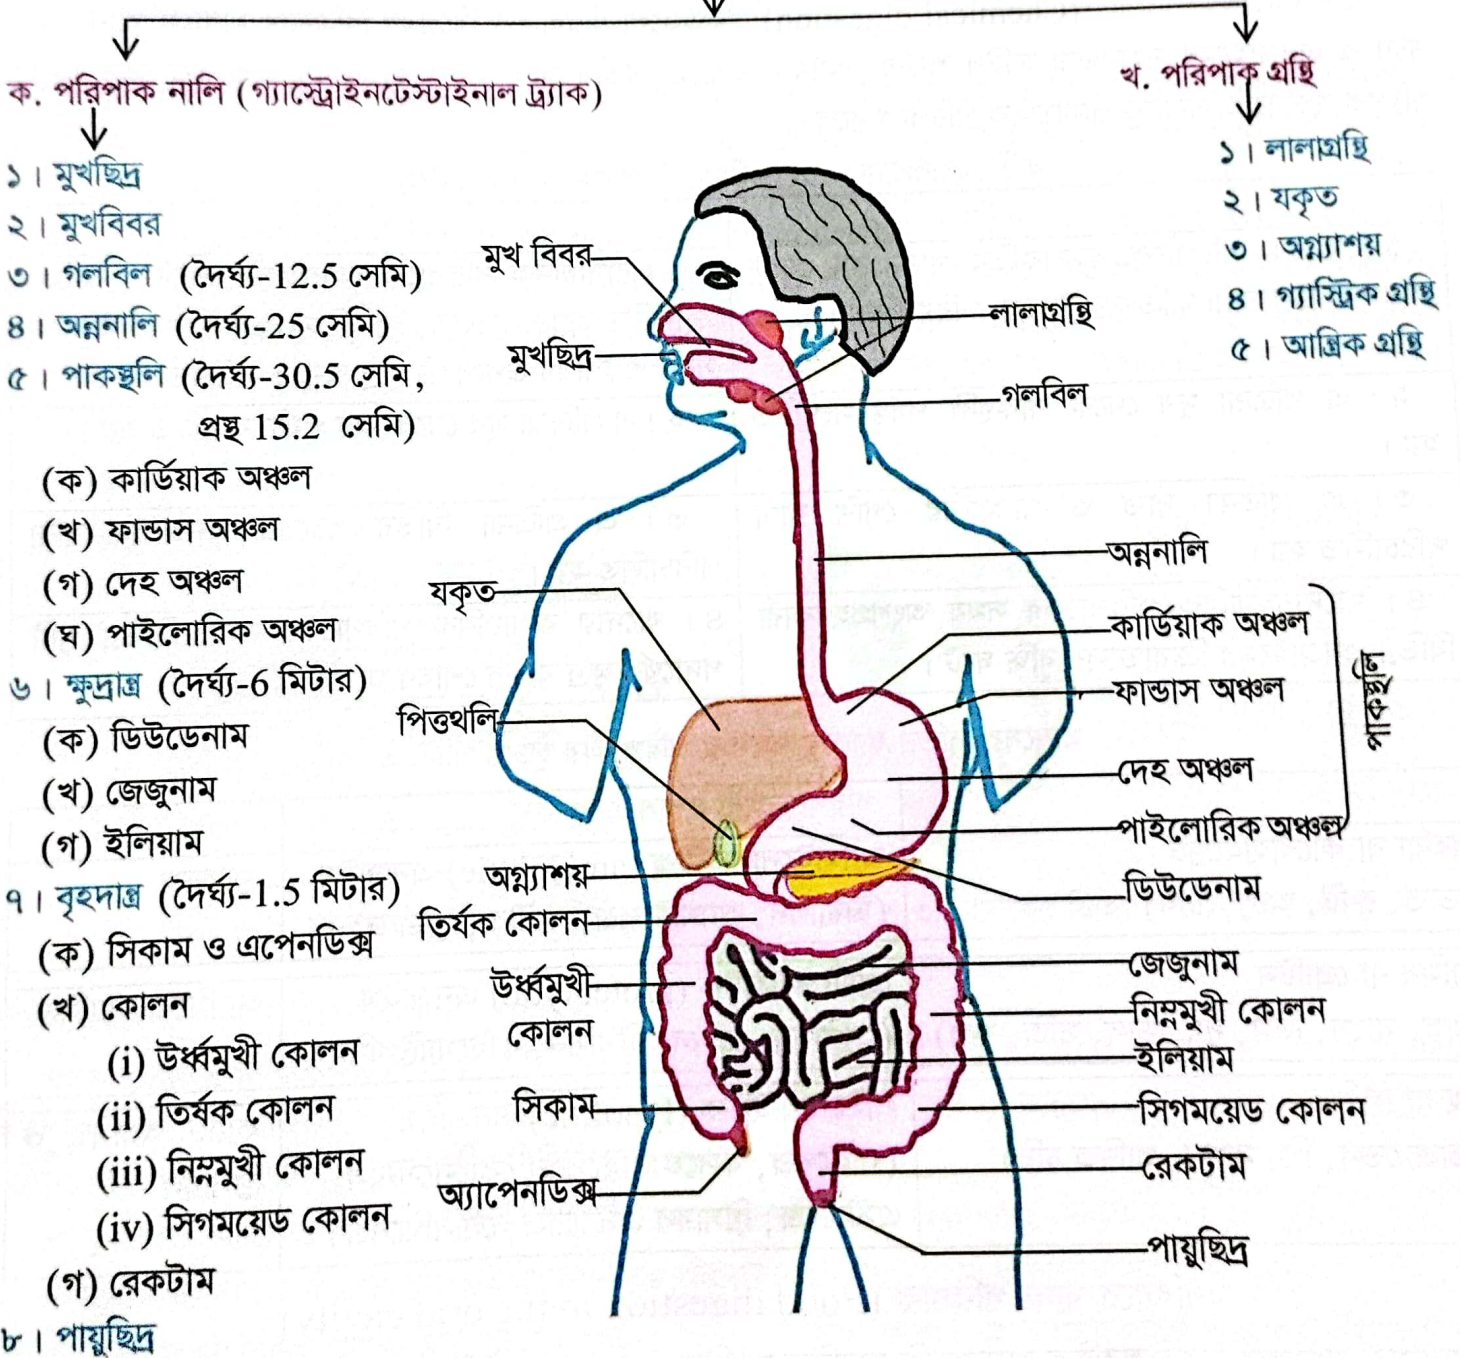 ক. পরিপাক নালি (গ্যাস্ট্রোইনটেস্টাইনাল ট্র্যাক)
১। মুখছিদ্র
২। মুখবিবর
৩। গলবিল (দৈর্ঘ্য-12.5 সেমি)
৪। অন্ননালি (দৈর্ঘ্য-25 সেমি)
৫। পাকস্থলি (দৈর্ঘ্য-30.5 সেমি,
প্রস্থ 15.2 সেমি)
(ক) কার্ডিয়াক অঞ্চল
(খ) ফান্ডাস অঞ্চল
(গ) দেহ অঞ্চল
(ঘ) পাইলোরিক অঞ্চল
৬। ক্ষুদ্রান্ত্র (দৈর্ঘ্য-6 মিটার)
(ক) ডিউডেনাম
(খ) জেজুনাম
(গ) ইলিয়াম
৭। বৃহদান্ত্র (দৈর্ঘ্য-1.5 মিটার)
(ক) সিকাম ও এপেনডিক্স
(খ) কোলন
(i) উর্ধ্বমুখী কোলন
(ii) তির্যক কোলন
(iii) নিম্নমুখী কোলন
(iv) সিগময়েড কোলন
(গ) রেকটাম
৮। পায়ুছিদ্র
খ. পরিপাক গ্রন্থি
১। লালাগ্রন্থি
২। যকৃত
৩। অগ্ন্যাশয়
৪। গ্যাস্ট্রিক গ্রন্থি
৫। আন্ত্রিক গ্রন্থি
মুখ বিবর
মুখছিদ্র
যকৃত
পিত্তথলি
অগ্ন্যাশয়
তির্যক কোলন
উর্ধ্বমুখী
কোলন
সিকাম
অ্যাপেনডিক্স
লালাগ্রন্থি
গলবিল
অন্ননালি
কার্ডিয়াক অঞ্চল
ফান্ডাস অঞ্চল
দেহ অঞ্চল
পাইলোরিক অঞ্চল
পাকস্থলি
ডিউডেনাম
জেজুনাম
নিম্নমুখী কোলন
ইলিয়াম
সিগময়েড কোলন
রেকটাম
পায়ুছিদ্র